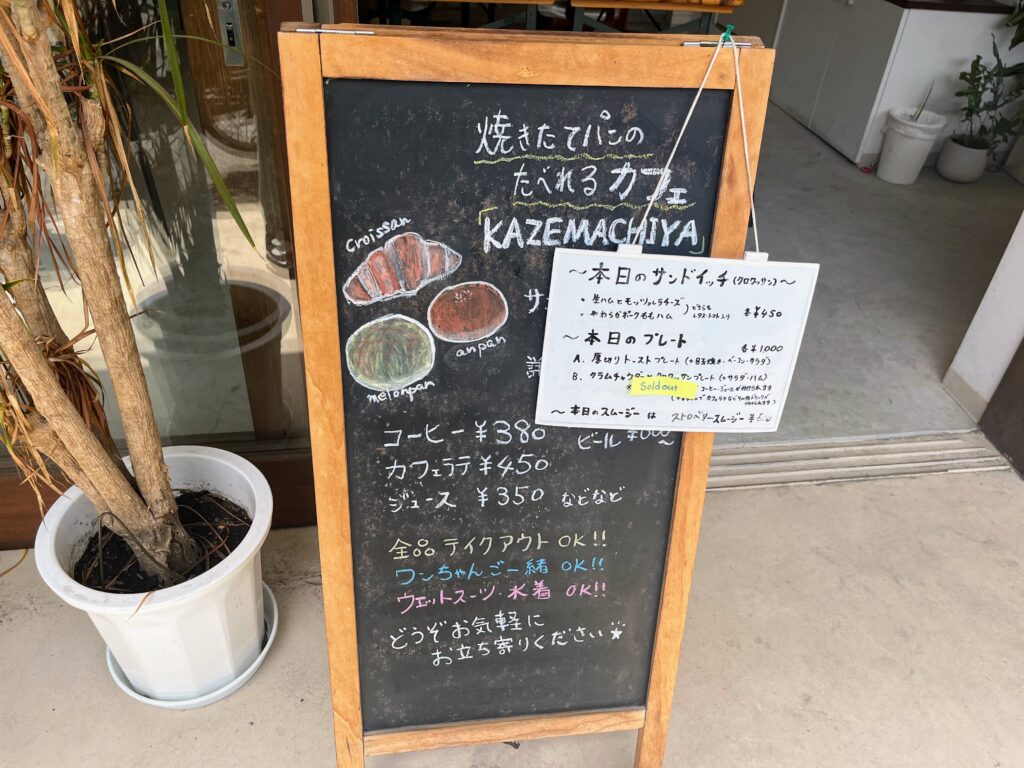 焼きたてパンの
たべれるカフェ
「KAZEMACHIYA」
croissan
anpan
melonpan
～本日のサンドイッチ(クロワッサン)～
・生ハムとモッツァレラチーズ
・やわらかポークももハム
どちらも
レタス・トマト入り
各¥450
～本日のプレート
各¥1,000
A. 厚切りトーストプレート(+目玉焼き・ベーコン・サラダ)
B. クラムチャウダーとクロワッサンプレート(+サラダ・ハム)
Sold out
コーヒー・ジュースが付けられます
～本日のスムージーは ストロベリースムージー
コーヒー ¥380
ビール
カフェラテ ¥450
ジュース ¥350 などなど
全品テイクアウトOK!!
ワンちゃんご一緒OK!!
ウェットスーツ・水着OK!!
どうぞお気軽に
お立ち寄りください